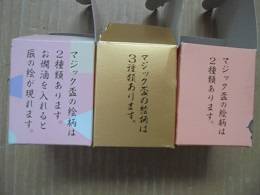 マジック盃の絵柄は
2種類あります。
お燗酒を入れると
辰の絵が現れます。
マジック盃の絵柄は
3種類あります。
マジック盃の絵柄は
2種類あります。